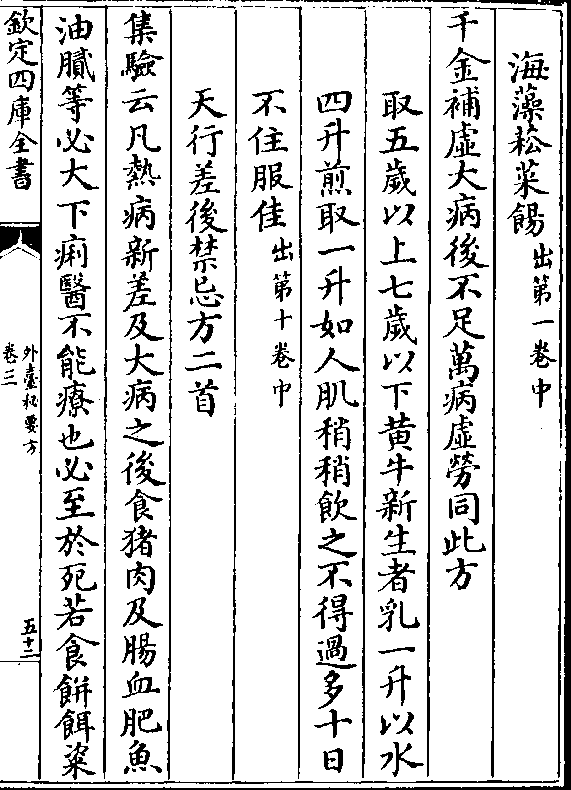 海藻菘菜餳出第一卷中
千金補虛大病後不足萬病虛勞同此方
取五歲以上七歲以下黄牛新生者乳一升以水
四升煎取一升如人肌稍稍飲之不得過多十日
不住服佳出第十卷中
天行差後禁忌方二首
集驗云凡熱病新差及大病之後食猪肉及腸血肥魚
油膩等必大下痢醫不能療也必至於死若食餅餌粢
欽定四庫全書
外臺秘要方
卷三
五十二